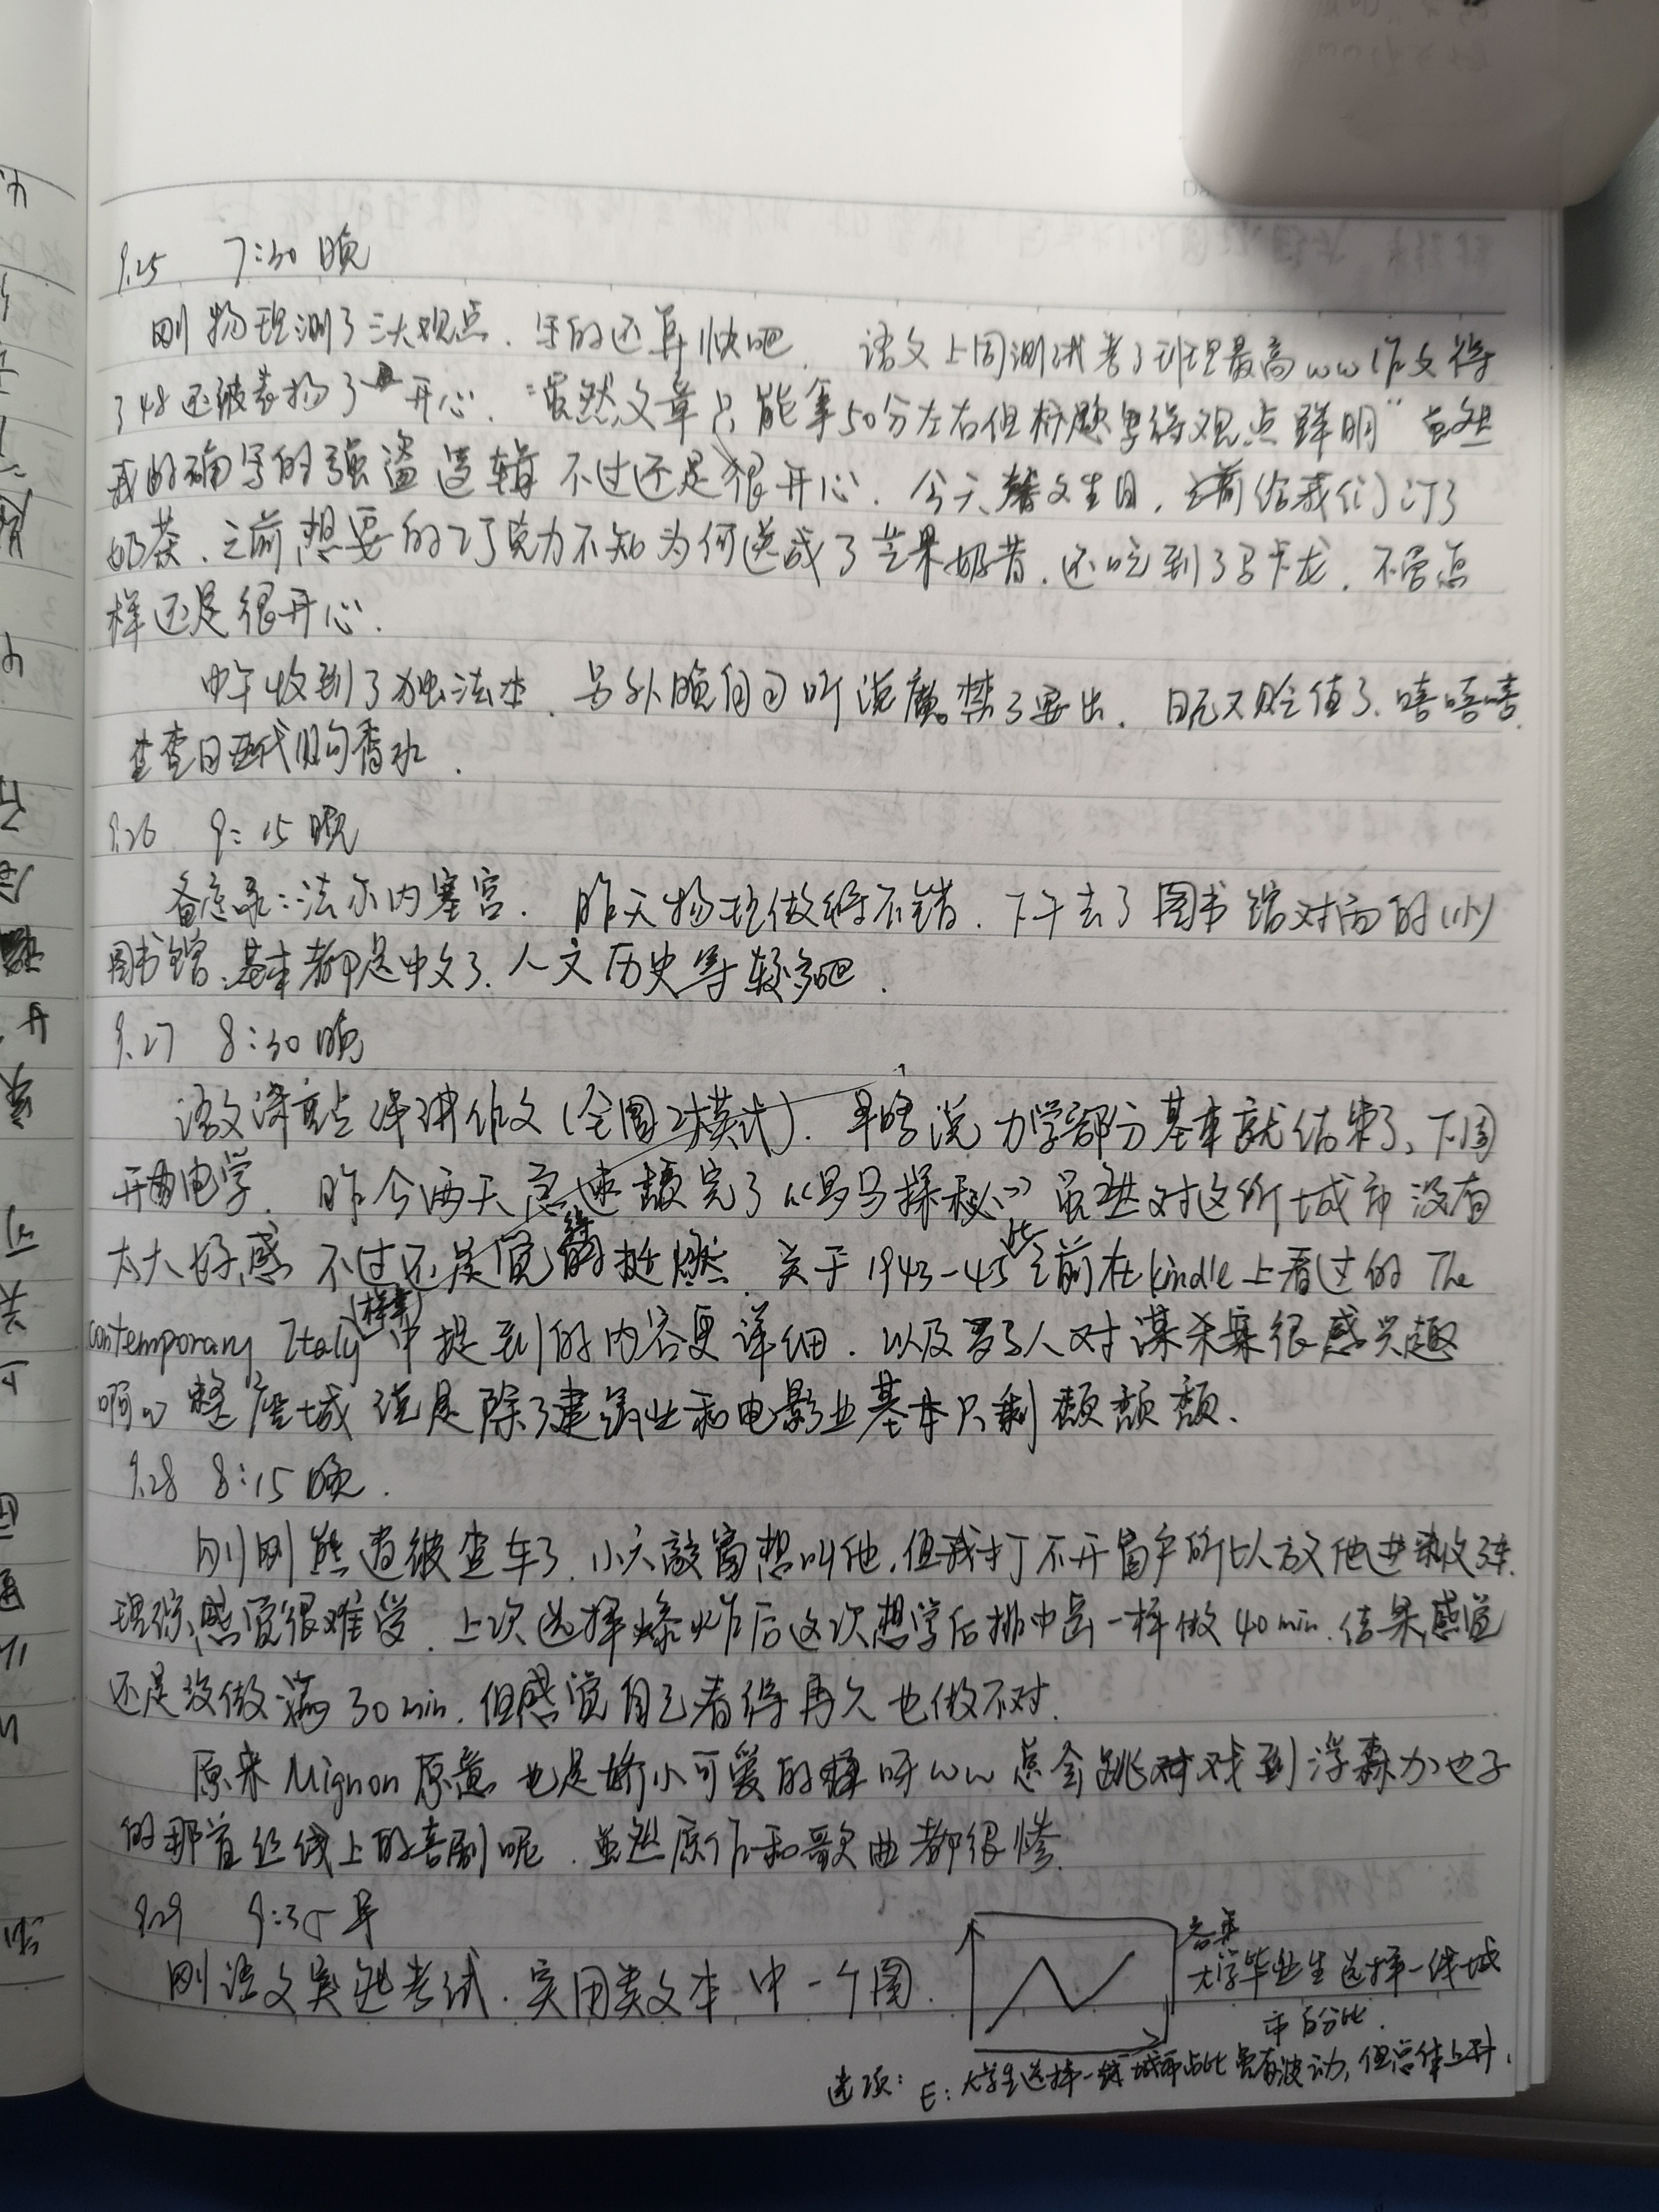 9.25 7:30 晚
刚物理测了三大观点、写的还算快吧. 语文上周测试考了班里最高ww作文得
了48还被表扬了 开心. "虽然文章只能拿50分左右但标题写得观点鲜明" 虽然
我的确写的强盗逻辑 不过还是很开心. 今天 生日, 给我们订了
奶茶、之前想要的巧克力不知为何送成了芒果奶昔. 还吃到了马卡龙. 不管怎
样还是很开心.
中午收到了 法 . 另外晚自习听说 禁了要出. 嘻嘻嘻.
查查日亚代购香水.
9.26 9:15 晚
备忘录:法尔内塞宫. 昨天物理做得不错. 下午去了图书馆对面的(小)
图书馆、基本都是中文了、人文历史等较多吧.
9.27 8:30 晚
语文 评讲作文(全国2模式). 说力学部分基本就结束了、下周
开电学. 昨今两天急速 完了《罗马探秘》虽然对这所城市没有
太大好感 不过还是觉得挺燃. 关于1943-45比之前在kindle上看过的 The
contemporary Italy(样章)中提到的内容更详细. 以及罗马人对谋杀案很感兴趣
啊~ 整座城说是除了建筑业和电影业基本只剩颓颓颓、
9.28 8:15 晚.
刚刚 被查车了. 小六敲窗想叫他,但我打不开窗户所以放他进来
理综感觉很难受. 上次选择爆炸后这次想学后排 一样做40min. 结果感觉
还是没做满30min. 但感觉自己看得再久也做不对.
原来Mignon原意也是娇小可爱的 呀ww 总会跳戏到浮森加也子
的那首丝线上的喜剧呢. 虽然原作和歌曲都很惨.
9.29 9:35 早
刚语文突袭考试. 实用类文本中一个图.
各年
大学毕业生选择一线城
市百分比.
选项: E:大学生选择一线城市占比虽有波动,但总体上升.